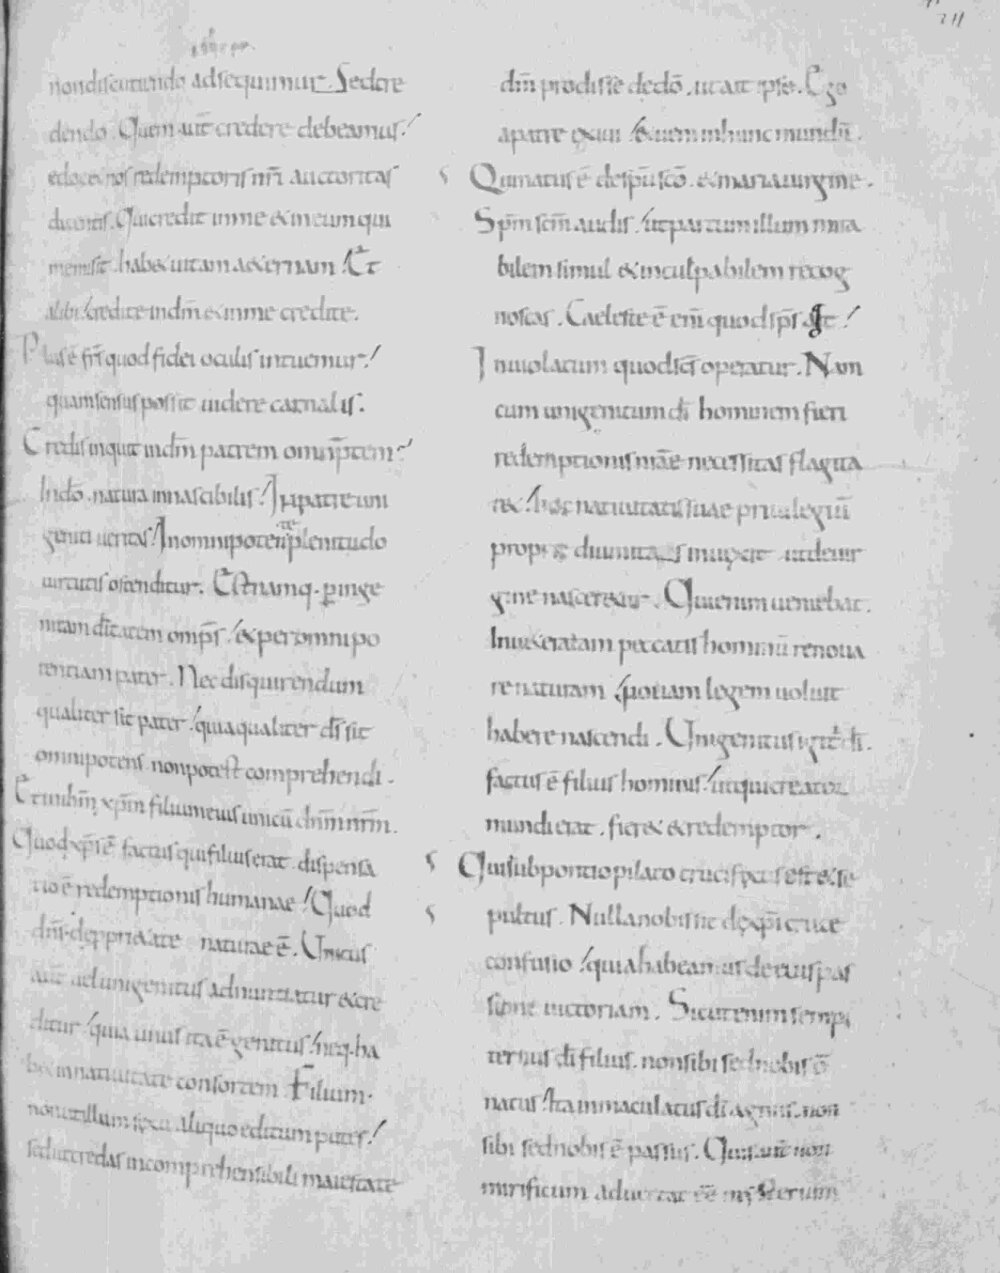 211
non discutiendo adsequimur. Sed cre
dendo. Quem aut̄ credere debeamus.
edocet nos redemptoris nr̄i auctoritas
dicentis. Qui credit in me & in eum qui
me misit. habet uitam aeternam. Et
alibi. credite in dm̄ et in me credite.
Plus ē fr̄s quod fidei oculis intuemur.
quam sensus possit uidere carnalis.
Credis inquit in dm̄ patrem omnip̄tem
In dō. natura innascibilis. In patre uni
geniti ueritas. In omnipotente plenitudo
uirtutis ostenditur. Est namq. per inge
nitam dīτatem omp̄s. et per omnipo
tentiam pater. Nec disquirendum
qualiter sit pater. quia qualiter dī sit
omnipotens. non potest comprehendi.
Et in ihm̄ xp̄m filium eius unicū dnm̄ nrm̄.
Quod xp̄s ē factus qui filius erat dispensa
tio ē redemptionis humanae. Quod
dns̄. de pprietate naturae ē. Unicus
aut̄ ad unigenitus adnuntiatur et cre
ditur. quia unus ita ē genitus. neq. ha
bet in natiuitate consortem Filium.
non ut illum ex aliquo editum putes.
sed ut credas incomprehensibili maiestate
dm̄ prodisse de dō. ut ait ipse. Ego
a patre exiui et ueni in hunc mundū.
Qui natus ē de sp̄u scō. et maria uirgine.
Sp̄m scm̄ audis. ut partum illum mira
bilem simul et inculpabilem recog
noscas. Caeleste ē em̄ quod sp̄s agit.
Inuiolatum quod scs̄ operatur. Nam
cum unigenitum dī hominem fieri
redemptionis nrāe necessitas flagita
ret. hoc natiuitatis suae priuilegiū
propria diuinitas inuexit ut de uir
gine nasceretur. Qui enim ueniebat.
Inueteratam peccatis hominū renoua
re naturam nouam legem uoluit
habere nascendi. Unigenitus igit̄ dī.
factus ē filius hominis. ut qui creator
mundi erat. fieret et redemptor.
Qui sub pontio pilato crucifixus est et se
pultus. Nulla nobis sit de xp̄i cruce
confusio. quia habeamus de cuius pas
sione uictoriam. Sicut enim sempi
ternus dī filius. non sibi sed nobis ē
natus. Ita immaculatus dī agnus. non
sibi sed nobis ē passus. Quis aut̄ non
mirificum aduertat eē mysterium